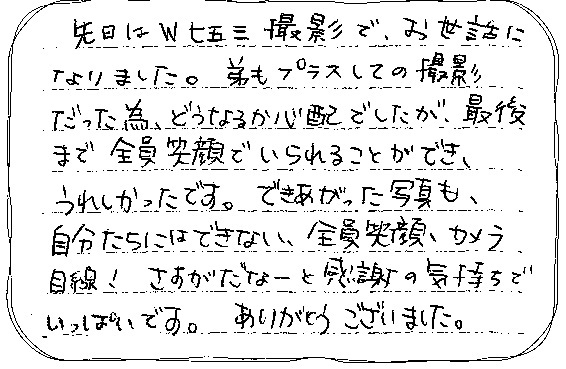 先日はW七五三撮影で、お世話に
なりました。弟もプラスしての撮影
だった為、どうなるか心配でしたが、最後
まで全員笑顔でいられることができ、
うれしかったです。できあがった写真も、
自分たちにはできない、全員笑顔、カメラ
目線！さすがだなーと感謝の気持ちで
いっぱいです。ありがとうございました。